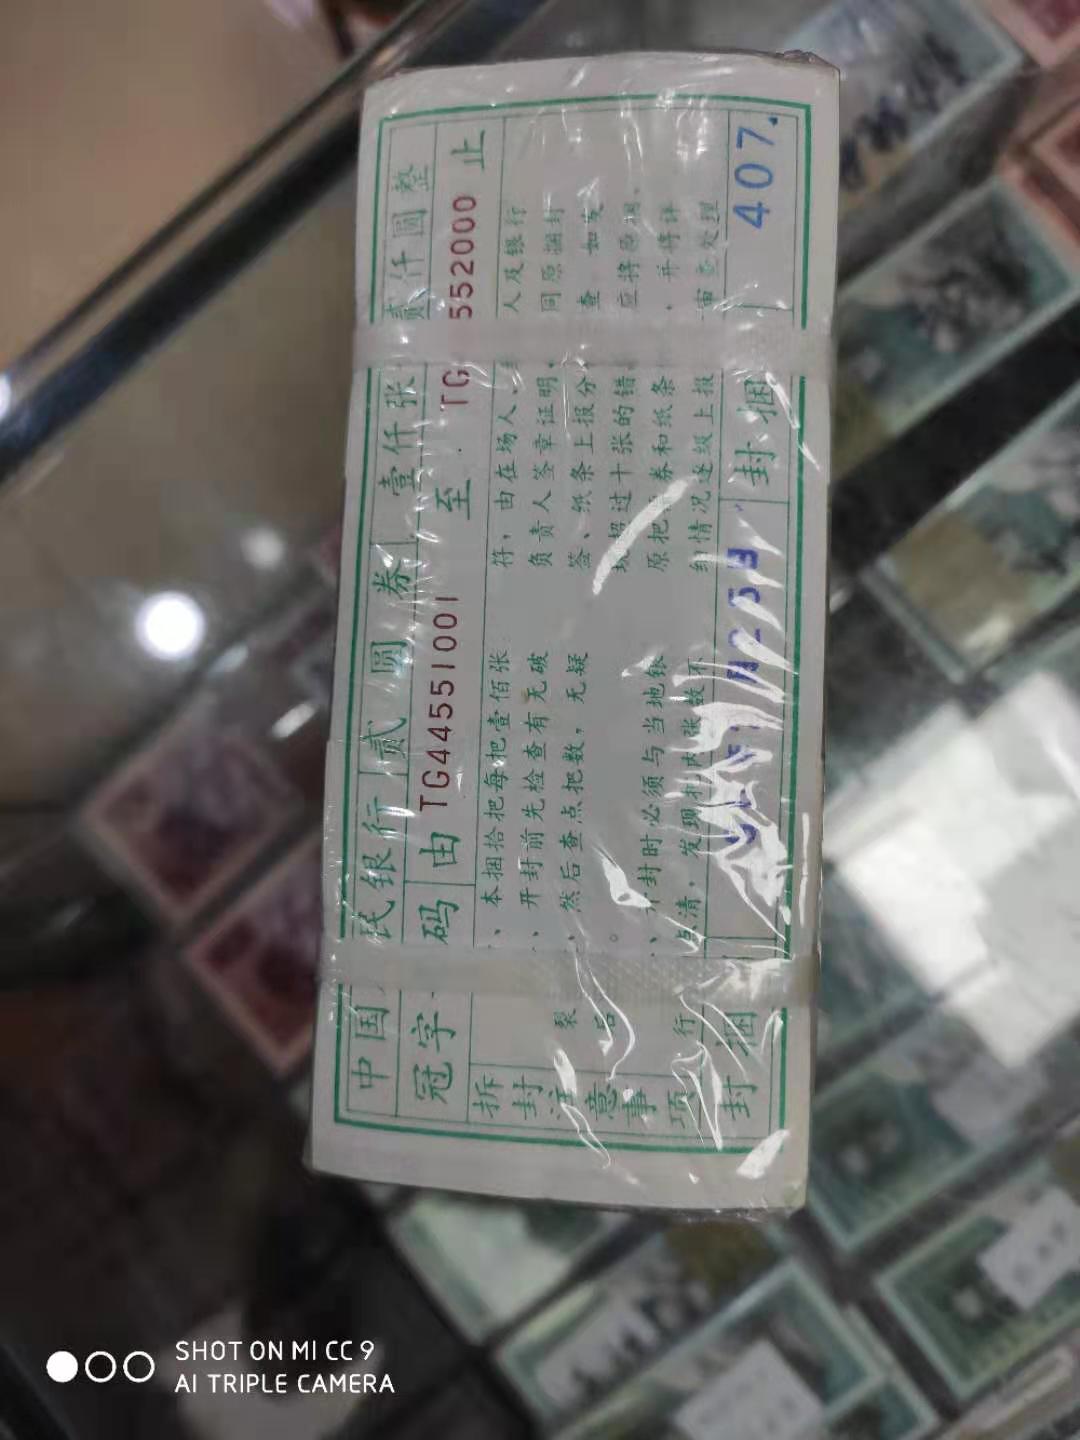 中国 民银行 贰圆券 壹仟张 贰仟圆整
冠字 码 由 TG44551001 至 TG 552000 止
拆封注意事项
、本捆拾把每把壹佰张
、开封前先检查有无破
裂
、然后查点把数,无疑
后
。
、 封时必须与当地银
行点清,发现把内张数不
符,由在场人、 人及银行
负责人签章证明, 同原捆封
签、纸条上报 查。如发
超过十张的错 应将原捆、
原把 券和纸条 ,并将详
细情况逐级上报 审查处理
封捆 封捆
407.
SHOT ON MI CC 9
AI TRIPLE CAMERA